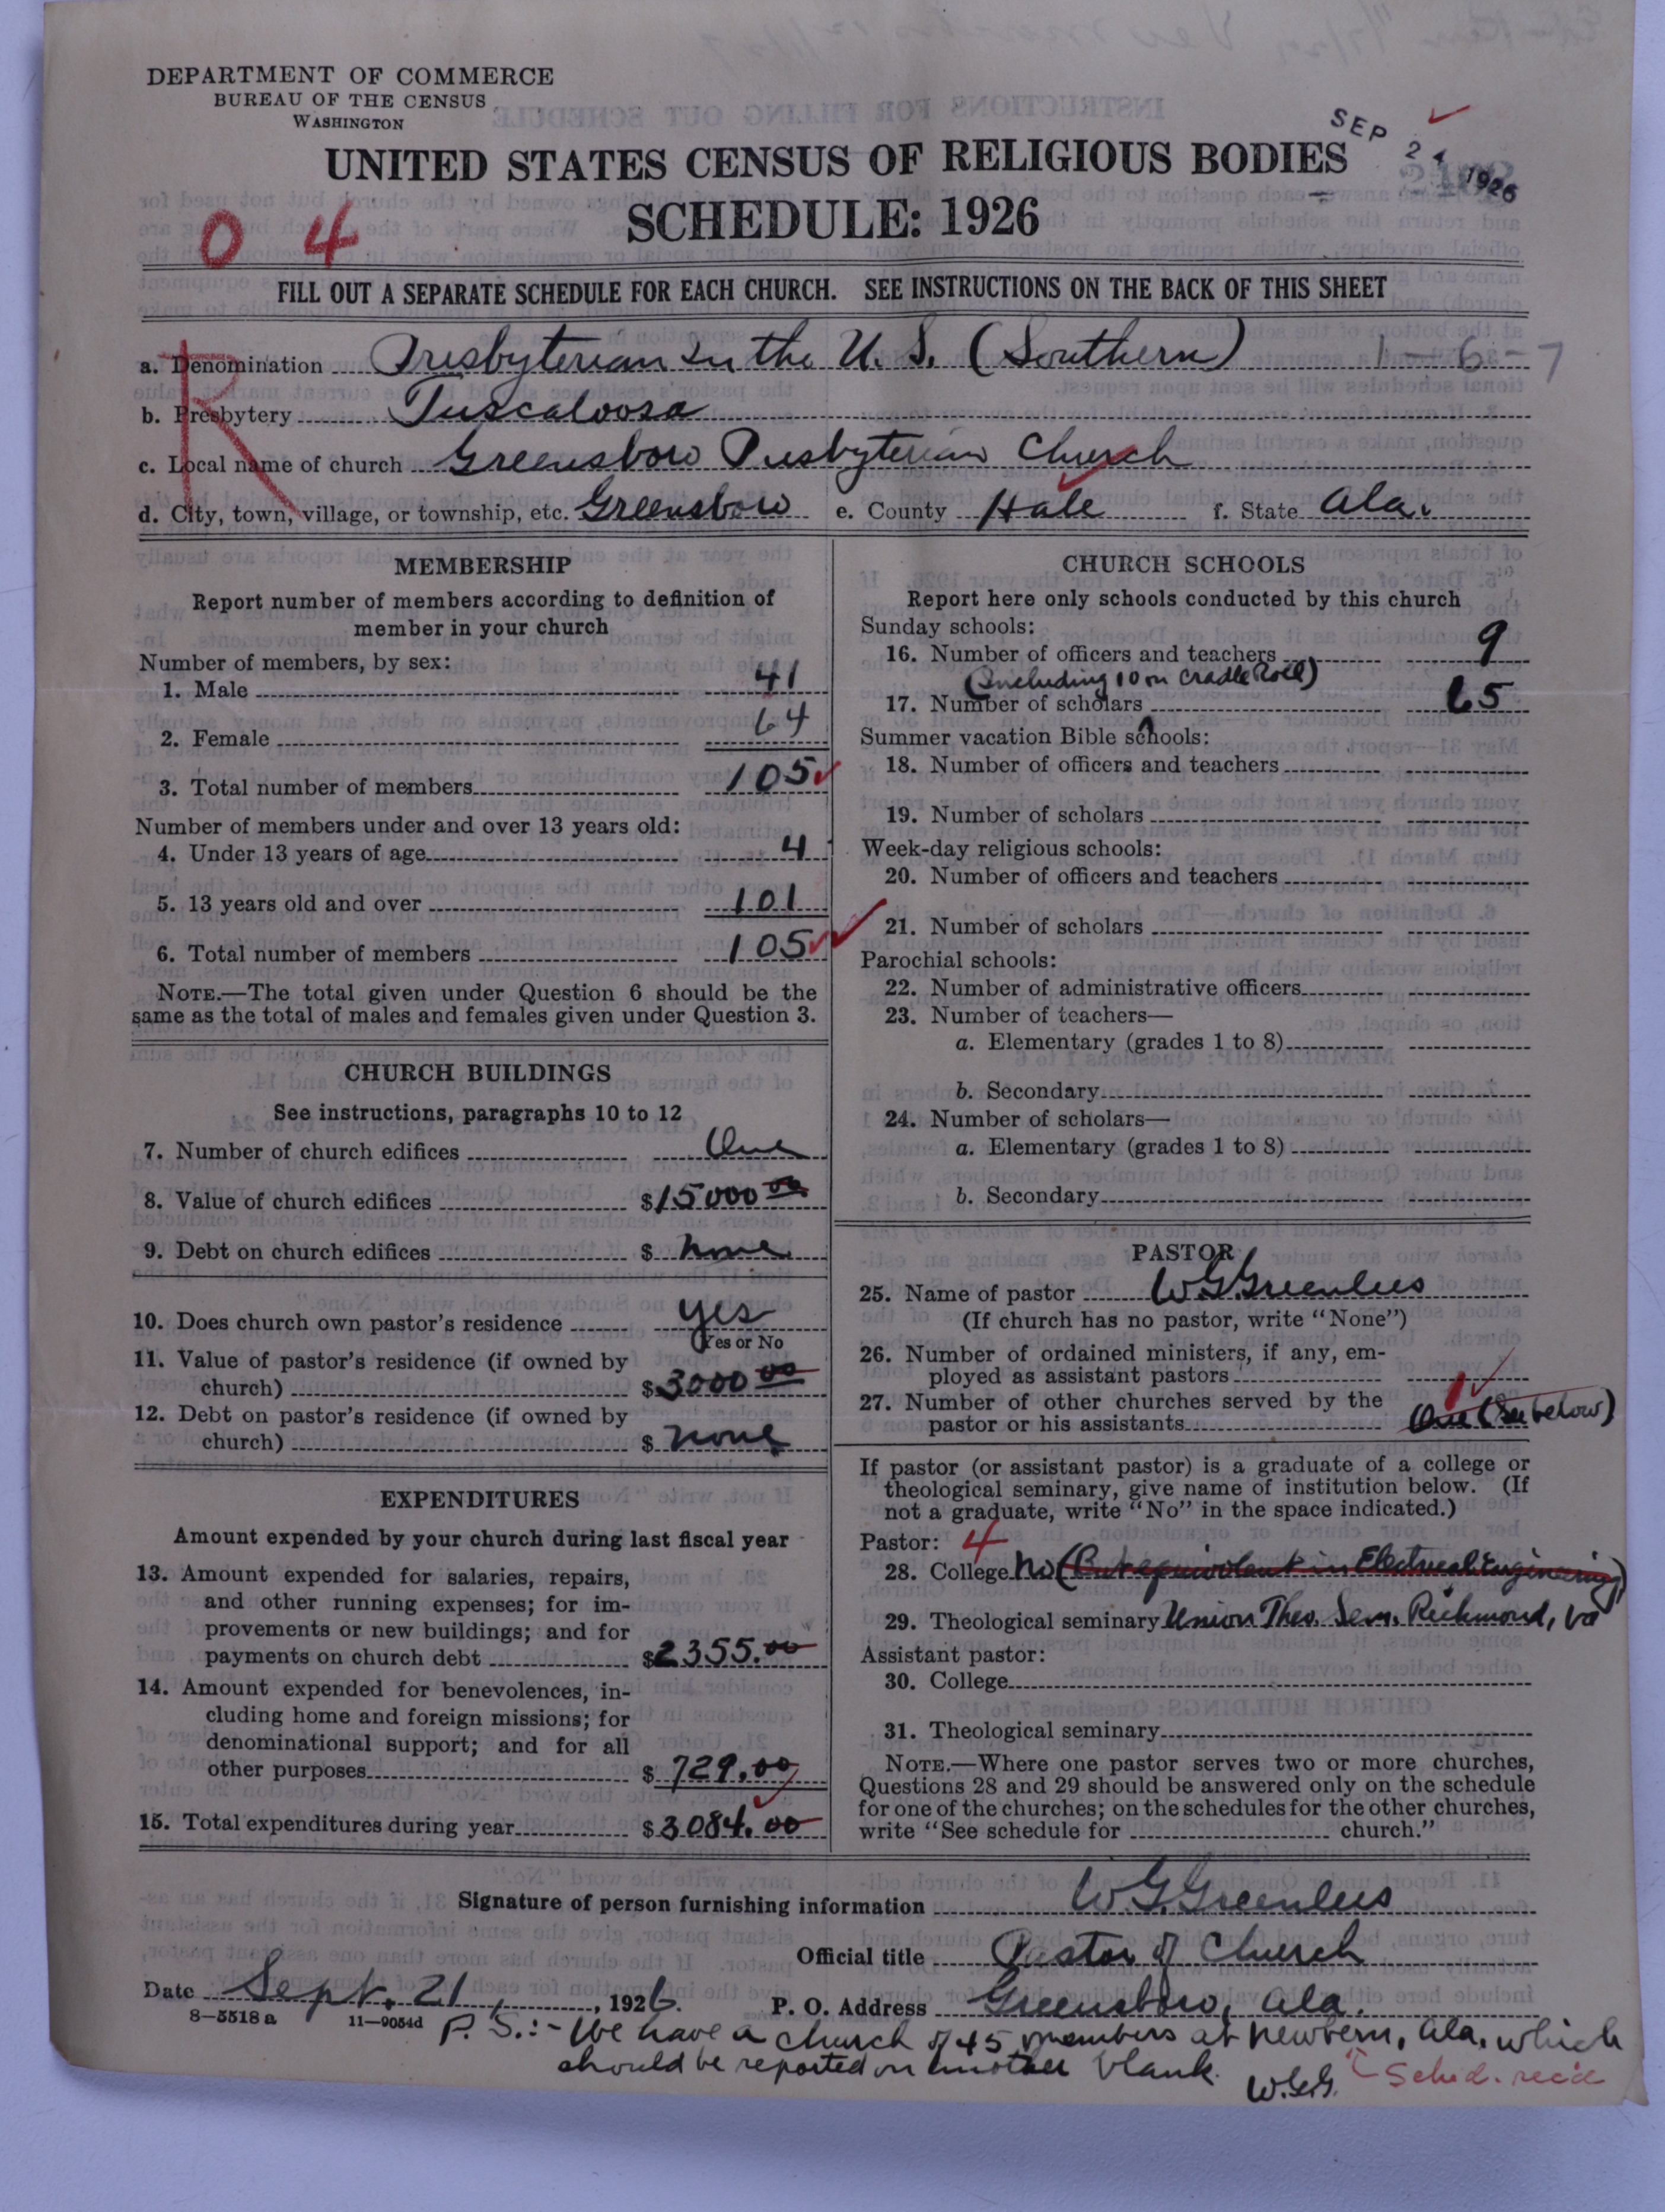 DEPARTMENT OF COMMERCE
BUREAU OF THE CENSUS
WASHINGTON
UNITED STATES CENSUS OF RELIGIOUS BODIES
SCHEDULE: 1926
SEP 24 1926
0 4
FILL OUT A SEPARATE SCHEDULE FOR EACH CHURCH. SEE INSTRUCTIONS ON THE BACK OF THIS SHEET
R
a. Denomination Presbyterian in the U.S. (Southern) 1-6-7
b. Presbytery Tuscaloosa
c. Local name of church Greensboro Presbyterian Church
d. City, town, village, or township, etc. Greensboro e. County Hale f. State Ala.
MEMBERSHIP
Report number of members according to definition of
member in your church
Number of members, by sex:
1. Male 41
2. Female 64
3. Total number of members 105
Number of members under and over 13 years old:
4. Under 13 years of age 4
5. 13 years old and over 101
6. Total number of members 105
NOTE.—The total given under Question 6 should be the
same as the total of males and females given under Question 3.
CHURCH BUILDINGS
See instructions, paragraphs 10 to 12
7. Number of church edifices One
8. Value of church edifices $15000 00
9. Debt on church edifices $ none
10. Does church own pastor's residence yes
Yes or No
11. Value of pastor's residence (if owned by
church) $3000 00
12. Debt on pastor's residence (if owned by
church) $ none
EXPENDITURES
Amount expended by your church during last fiscal year
13. Amount expended for salaries, repairs,
and other running expenses; for im-
provements or new buildings; and for
payments on church debt $2355.00
14. Amount expended for benevolences, in-
cluding home and foreign missions; for
denominational support; and for all
other purposes $ 729.00
15. Total expenditures during year $3084.00
CHURCH SCHOOLS
Report here only schools conducted by this church
Sunday schools:
16. Number of officers and teachers 9
(Including 10 on Cradle Roll)
17. Number of scholars 65
Summer vacation Bible schools:
18. Number of officers and teachers
19. Number of scholars
Week-day religious schools:
20. Number of officers and teachers
21. Number of scholars
Parochial schools:
22. Number of administrative officers
23. Number of teachers—
a. Elementary (grades 1 to 8)
b. Secondary
24. Number of scholars—
a. Elementary (grades 1 to 8)
b. Secondary
PASTOR
25. Name of pastor W.G. Greenlees
(If church has no pastor, write "None")
26. Number of ordained ministers, if any, em-
ployed as assistant pastors
27. Number of other churches served by the 1
pastor or his assistants One (See below)
If pastor (or assistant pastor) is a graduate of a college or
theological seminary, give name of institution below. (If
not a graduate, write "No" in the space indicated.)
Pastor: 4
28. College No (But equivalent in Electrical Engineering)
29. Theological seminary Union Theo. Sem. Richmond, Va
Assistant pastor:
30. College
31. Theological seminary
NOTE.—Where one pastor serves two or more churches,
Questions 28 and 29 should be answered only on the schedule
for one of the churches; on the schedules for the other churches,
write "See schedule for church."
Signature of person furnishing information W.G. Greenlees
Official title Pastor of Church
Date Sept. 21, 1926. P. O. Address Greensboro, Ala.
8-5518a 11-9054d
P.S.:- We have a church of 45 members at Newbern, Ala. which
should be reported on another blank. W.G.G. Sched. rec'd